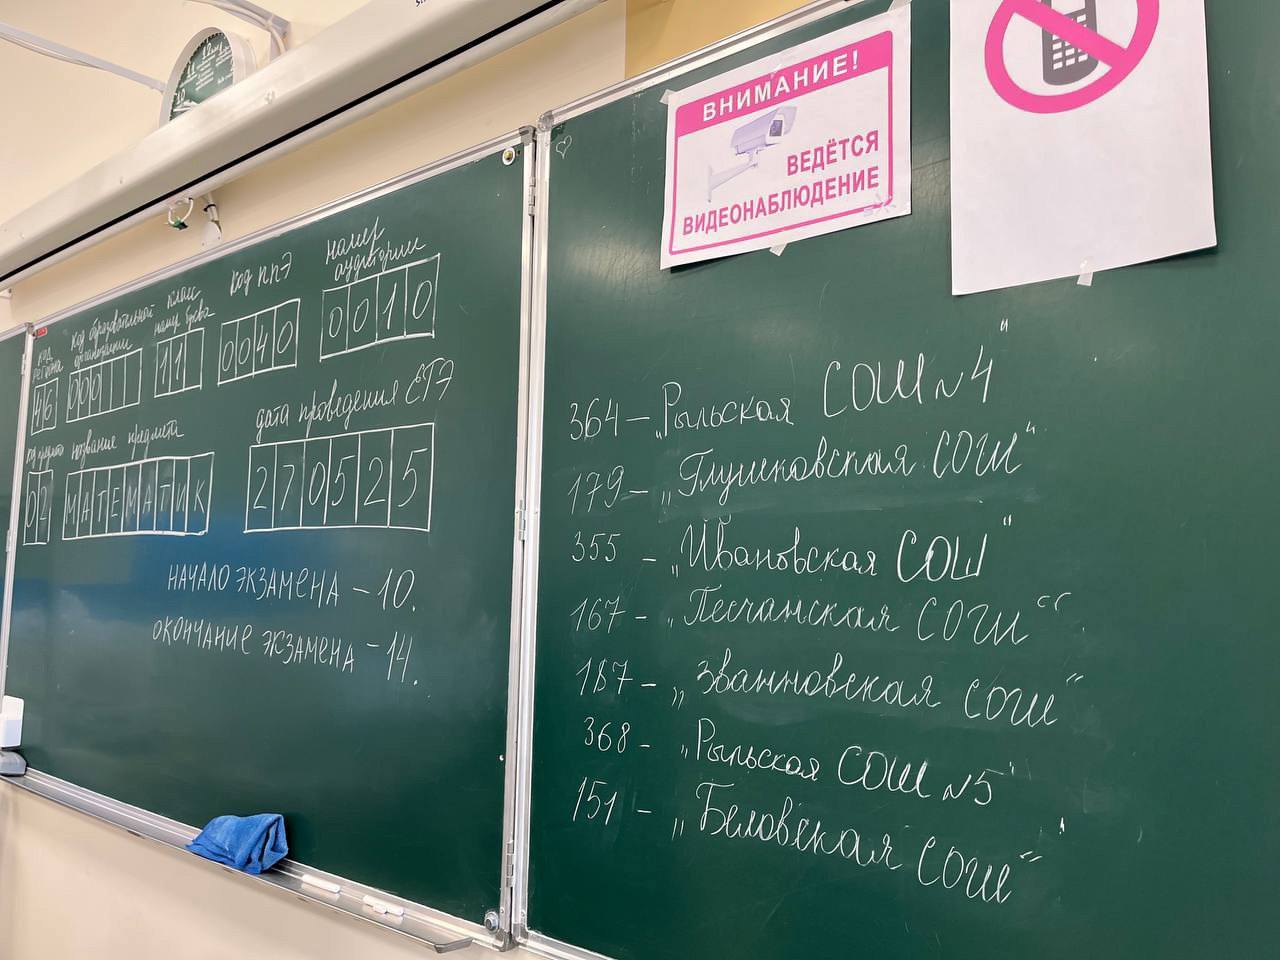 код региона
46
код образовательной организации
000
класс
номер буква
11
код ППЭ
0040
номер аудитории
0010
код предмета
02
название предмета
МАТЕМАТИК
дата проведения ЕГЭ
270525
НАЧАЛО ЭКЗАМЕНА – 10.
ОКОНЧАНИЕ ЭКЗАМЕНА – 14.
ВНИМАНИЕ!
ВЕДЁТСЯ
ВИДЕОНАБЛЮДЕНИЕ
364 – „Рыльская СОШ №4"
179 – „Глушковская СОШ"
355 – „Ивановская СОШ"
167 – „Песчанская СОШ"
187 – „Званновская СОШ"
368 – „Рыльская СОШ №5"
151 – „Беловская СОШ"